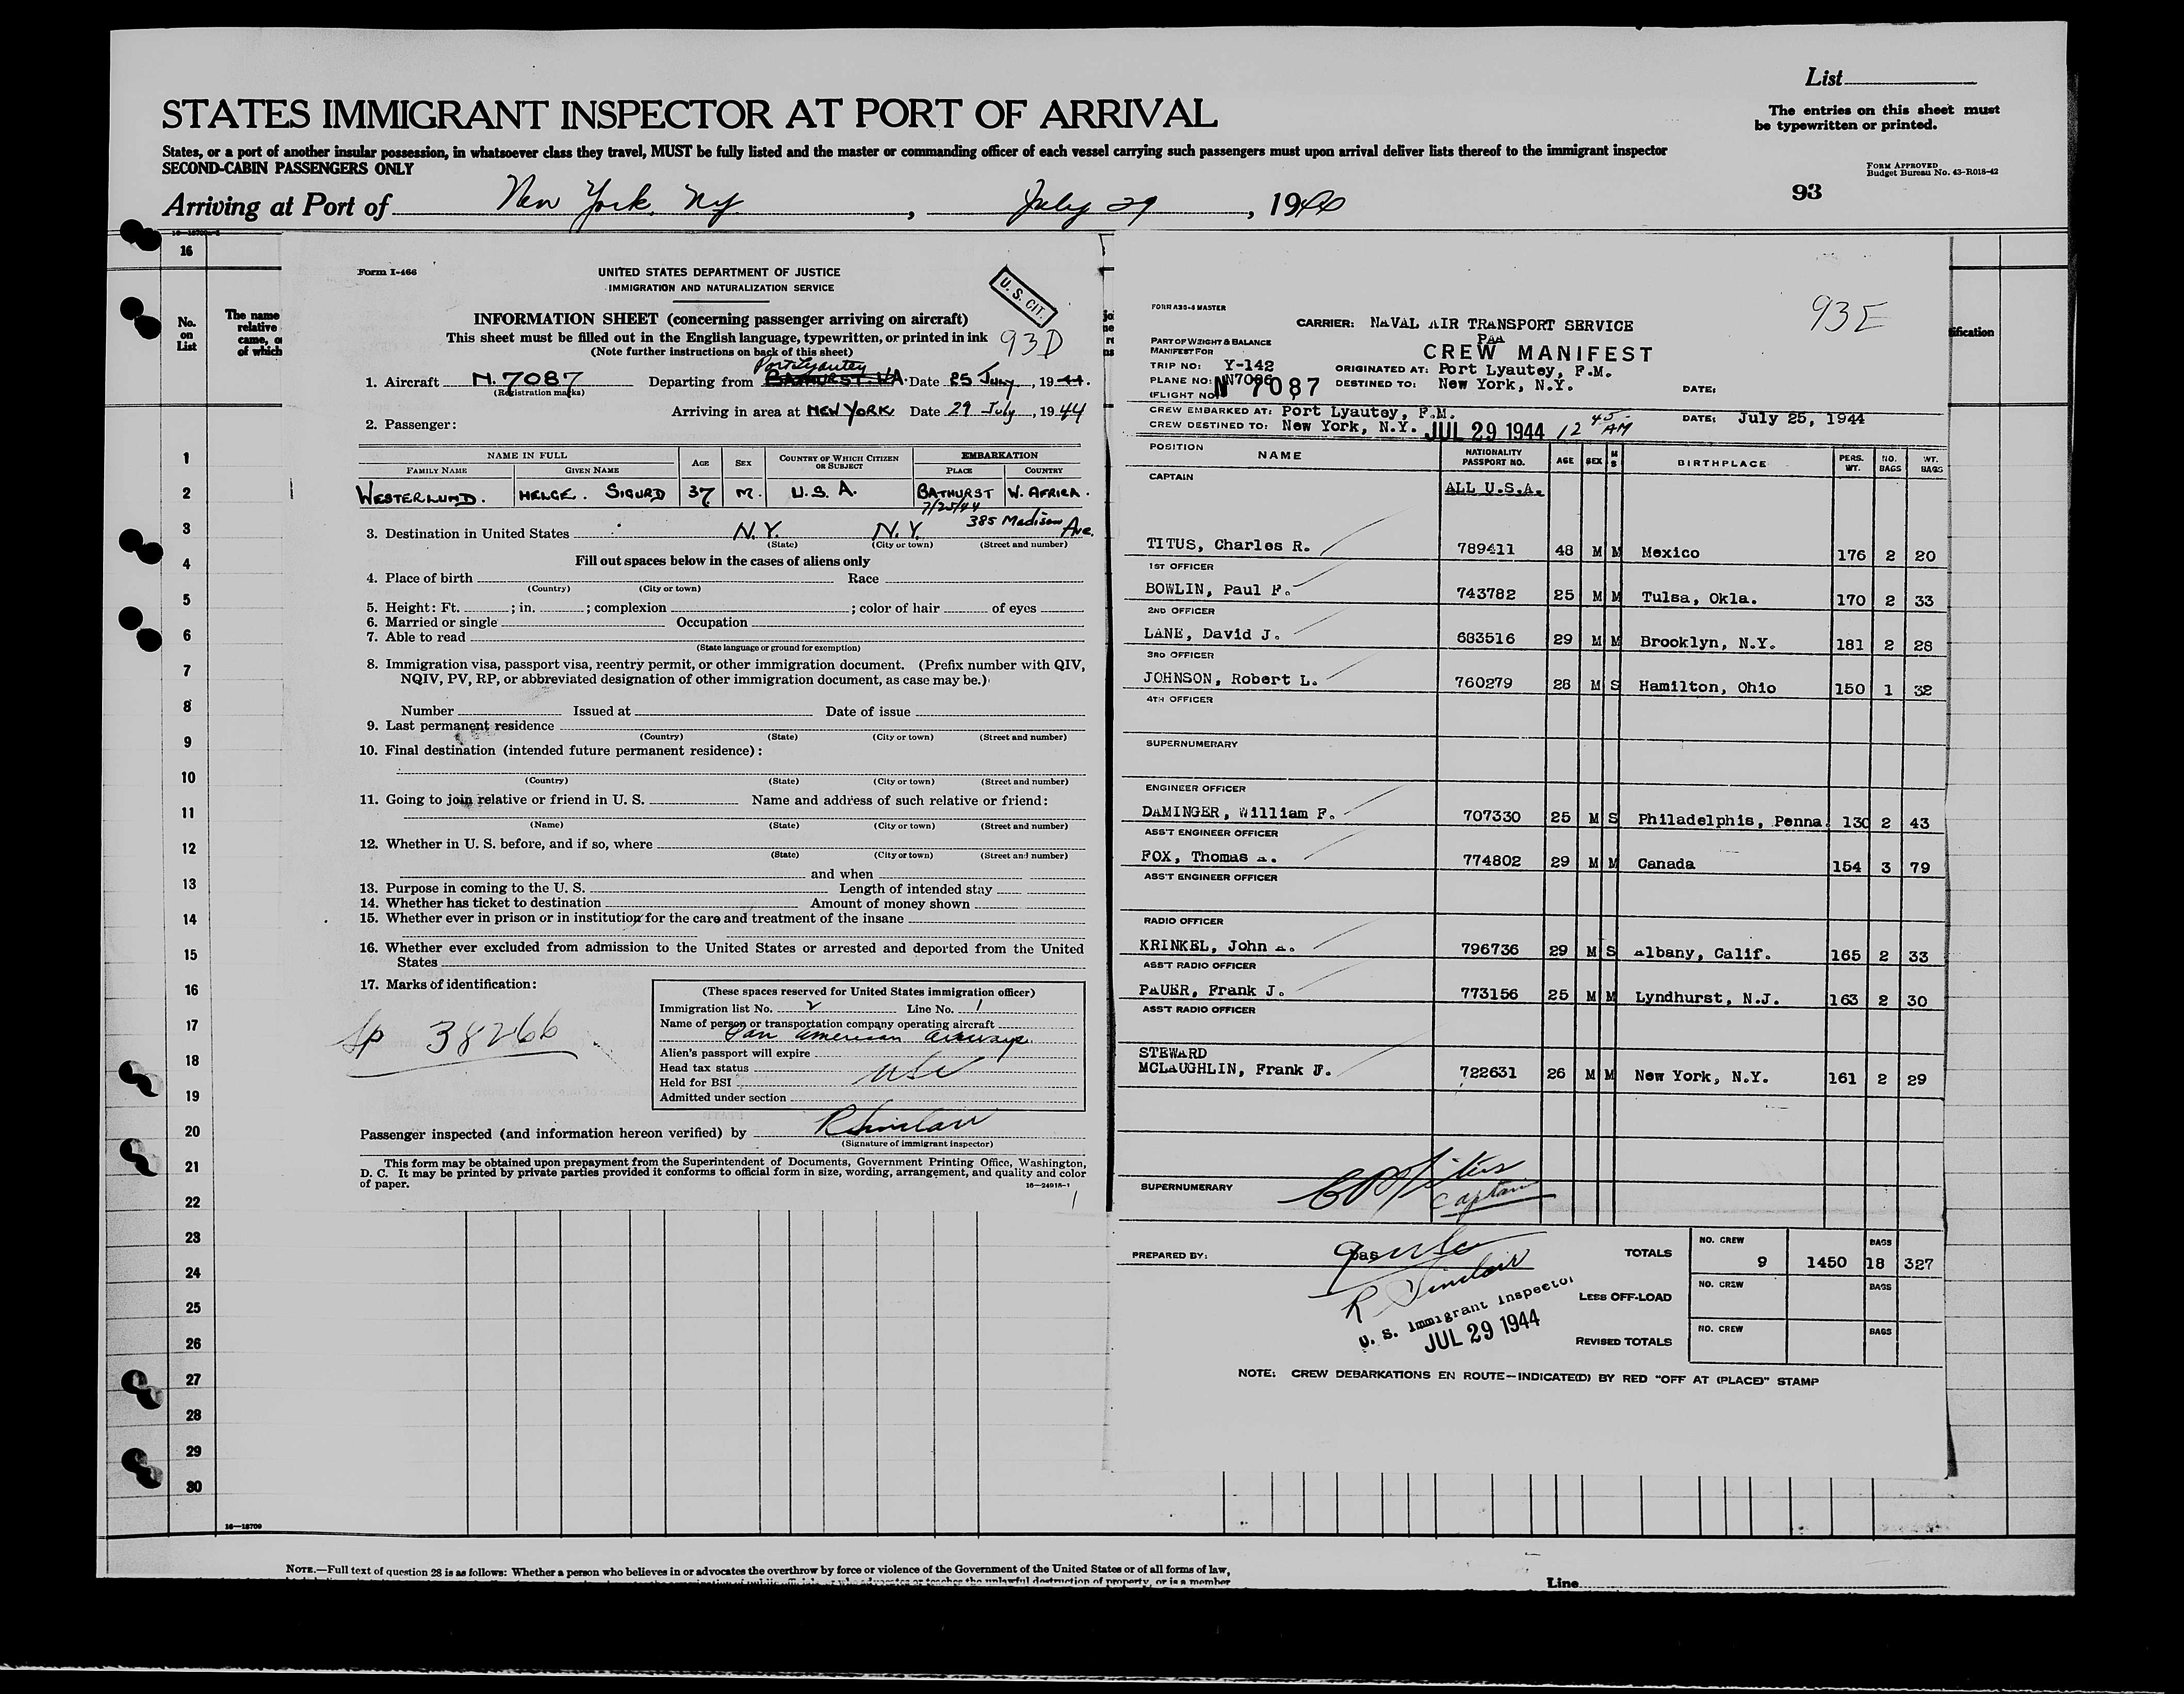 List
STATES IMMIGRANT INSPECTOR AT PORT OF ARRIVAL
The entries on this sheet must
be typewritten or printed.
States, or a port of another insular possession, in whatsoever class they travel, MUST be fully listed and the master or commanding officer of each vessel carrying such passengers must upon arrival deliver lists thereof to the immigrant inspector
SECOND-CABIN PASSENGERS ONLY
FORM APPROVED
Budget Bureau No. 43-R018-42
93
Arriving at Port of New York, NY. , July 29 , 1944
16
No.
on
List
The name
relative
came, o
of which
1
2
3
4
5
6
7
8
9
10
11
12
13
14
15
16
17
18
19
20
21
22
23
24
25
26
27
28
29
30
16—18700
Form I-466
UNITED STATES DEPARTMENT OF JUSTICE
IMMIGRATION AND NATURALIZATION SERVICE
U. S. CIT.
INFORMATION SHEET (concerning passenger arriving on aircraft)
This sheet must be filled out in the English language, typewritten, or printed in ink
93D
(Note further instructions on back of this sheet)
Port Lyautey
1. Aircraft N.7087 Departing from BATHURST. W.A. Date 25 July, 1944.
(Registration marks)
Arriving in area at NEW YORK Date 29 July, 1944
2. Passenger:
NAME IN FULL AGE SEX COUNTRY OF WHICH CITIZEN OR SUBJECT EMBARKATION
FAMILY NAME GIVEN NAME PLACE COUNTRY
WESTERLUND. HELGE. SIGURD 37 M. U.S.A. BATHURST W. AFRICA.
7/25/44
3. Destination in United States N.Y. N.Y. 385 Madison Ave.
(State) (City or town) (Street and number)
Fill out spaces below in the cases of aliens only
4. Place of birth Race
(Country) (City or town)
5. Height: Ft. ; in. ; complexion ; color of hair of eyes
6. Married or single Occupation
7. Able to read
(State language or ground for exemption)
8. Immigration visa, passport visa, reentry permit, or other immigration document. (Prefix number with QIV,
NQIV, PV, RP, or abbreviated designation of other immigration document, as case may be.)
Number Issued at Date of issue
9. Last permanent residence
(Country) (State) (City or town) (Street and number)
10. Final destination (intended future permanent residence):
(Country) (State) (City or town) (Street and number)
11. Going to join relative or friend in U. S. Name and address of such relative or friend:
(Name) (State) (City or town) (Street and number)
12. Whether in U. S. before, and if so, where
(State) (City or town) (Street and number)
and when
13. Purpose in coming to the U. S. Length of intended stay
14. Whether has ticket to destination Amount of money shown
15. Whether ever in prison or in institution for the care and treatment of the insane
16. Whether ever excluded from admission to the United States or arrested and deported from the United
States
17. Marks of identification:
Sp 38266
(These spaces reserved for United States immigration officer)
Immigration list No. 2 Line No. 1
Name of person or transportation company operating aircraft
Pan American Airways
Alien's passport will expire
Head tax status
Held for BSI USC
Admitted under section
Passenger inspected (and information hereon verified) by R Sinclair
(Signature of immigrant inspector)
This form may be obtained upon prepayment from the Superintendent of Documents, Government Printing Office, Washington,
D. C. It may be printed by private parties provided it conforms to official form in size, wording, arrangement, and quality and color
of paper.
16—24915-1
1
FORM A36-6 MASTER
93E
CARRIER: NAVAL AIR TRANSPORT SERVICE
PAA
PART OF WEIGHT & BALANCE
MANIFEST FOR
CREW MANIFEST
TRIP NO: Y-142 ORIGINATED AT: Port Lyautey, F.M.
PLANE NO: N7086 N 7087 DESTINED TO: New York, N.Y. DATE:
(FLIGHT NO)
CREW EMBARKED AT: Port Lyautey, F.M. DATE: July 25, 1944
CREW DESTINED TO: New York, N.Y. JUL 29 1944 12 45 AM
POSITION NAME NATIONALITY PASSPORT NO. AGE SEX M S BIRTHPLACE PERS. WT. NO. BAGS WT. BAGS
CAPTAIN ALL U.S.A.
TITUS, Charles R. 789411 48 M M Mexico 176 2 20
1ST OFFICER
BOWLIN, Paul F. 743782 25 M M Tulsa, Okla. 170 2 33
2ND OFFICER
LANE, David J. 683516 29 M M Brooklyn, N.Y. 181 2 28
3RD OFFICER
JOHNSON, Robert L. 760279 28 M S Hamilton, Ohio 150 1 32
4TH OFFICER
SUPERNUMERARY
ENGINEER OFFICER
DAMINGER, William F. 707330 25 M S Philadelphis, Penna. 130 2 43
ASS'T ENGINEER OFFICER
FOX, Thomas A. 774802 29 M M Canada 154 3 79
ASS'T ENGINEER OFFICER
RADIO OFFICER
KRINKEL, John A. 796736 29 M S Albany, Calif. 165 2 33
ASS'T RADIO OFFICER
PAUER, Frank J. 773156 25 M M Lyndhurst, N.J. 163 2 30
ASS'T RADIO OFFICER
STEWARD
MCLAUGHLIN, Frank J. 722631 26 M M New York, N.Y. 161 2 29
SUPERNUMERARY
CR Titus
Captain
PREPARED BY: TOTALS NO. CREW 9 1450 BAGS 18 327
R Sinclair
U. S. Immigrant Inspector
JUL 29 1944
LESS OFF-LOAD NO. CREW BAGS
REVISED TOTALS NO. CREW BAGS
NOTE: CREW DEBARKATIONS EN ROUTE—INDICATE(D) BY RED "OFF AT (PLACE)" STAMP
NOTE.—Full text of question 28 is as follows: Whether a person who believes in or advocates the overthrow by force or violence of the Government of the United States or of all forms of law,
Line